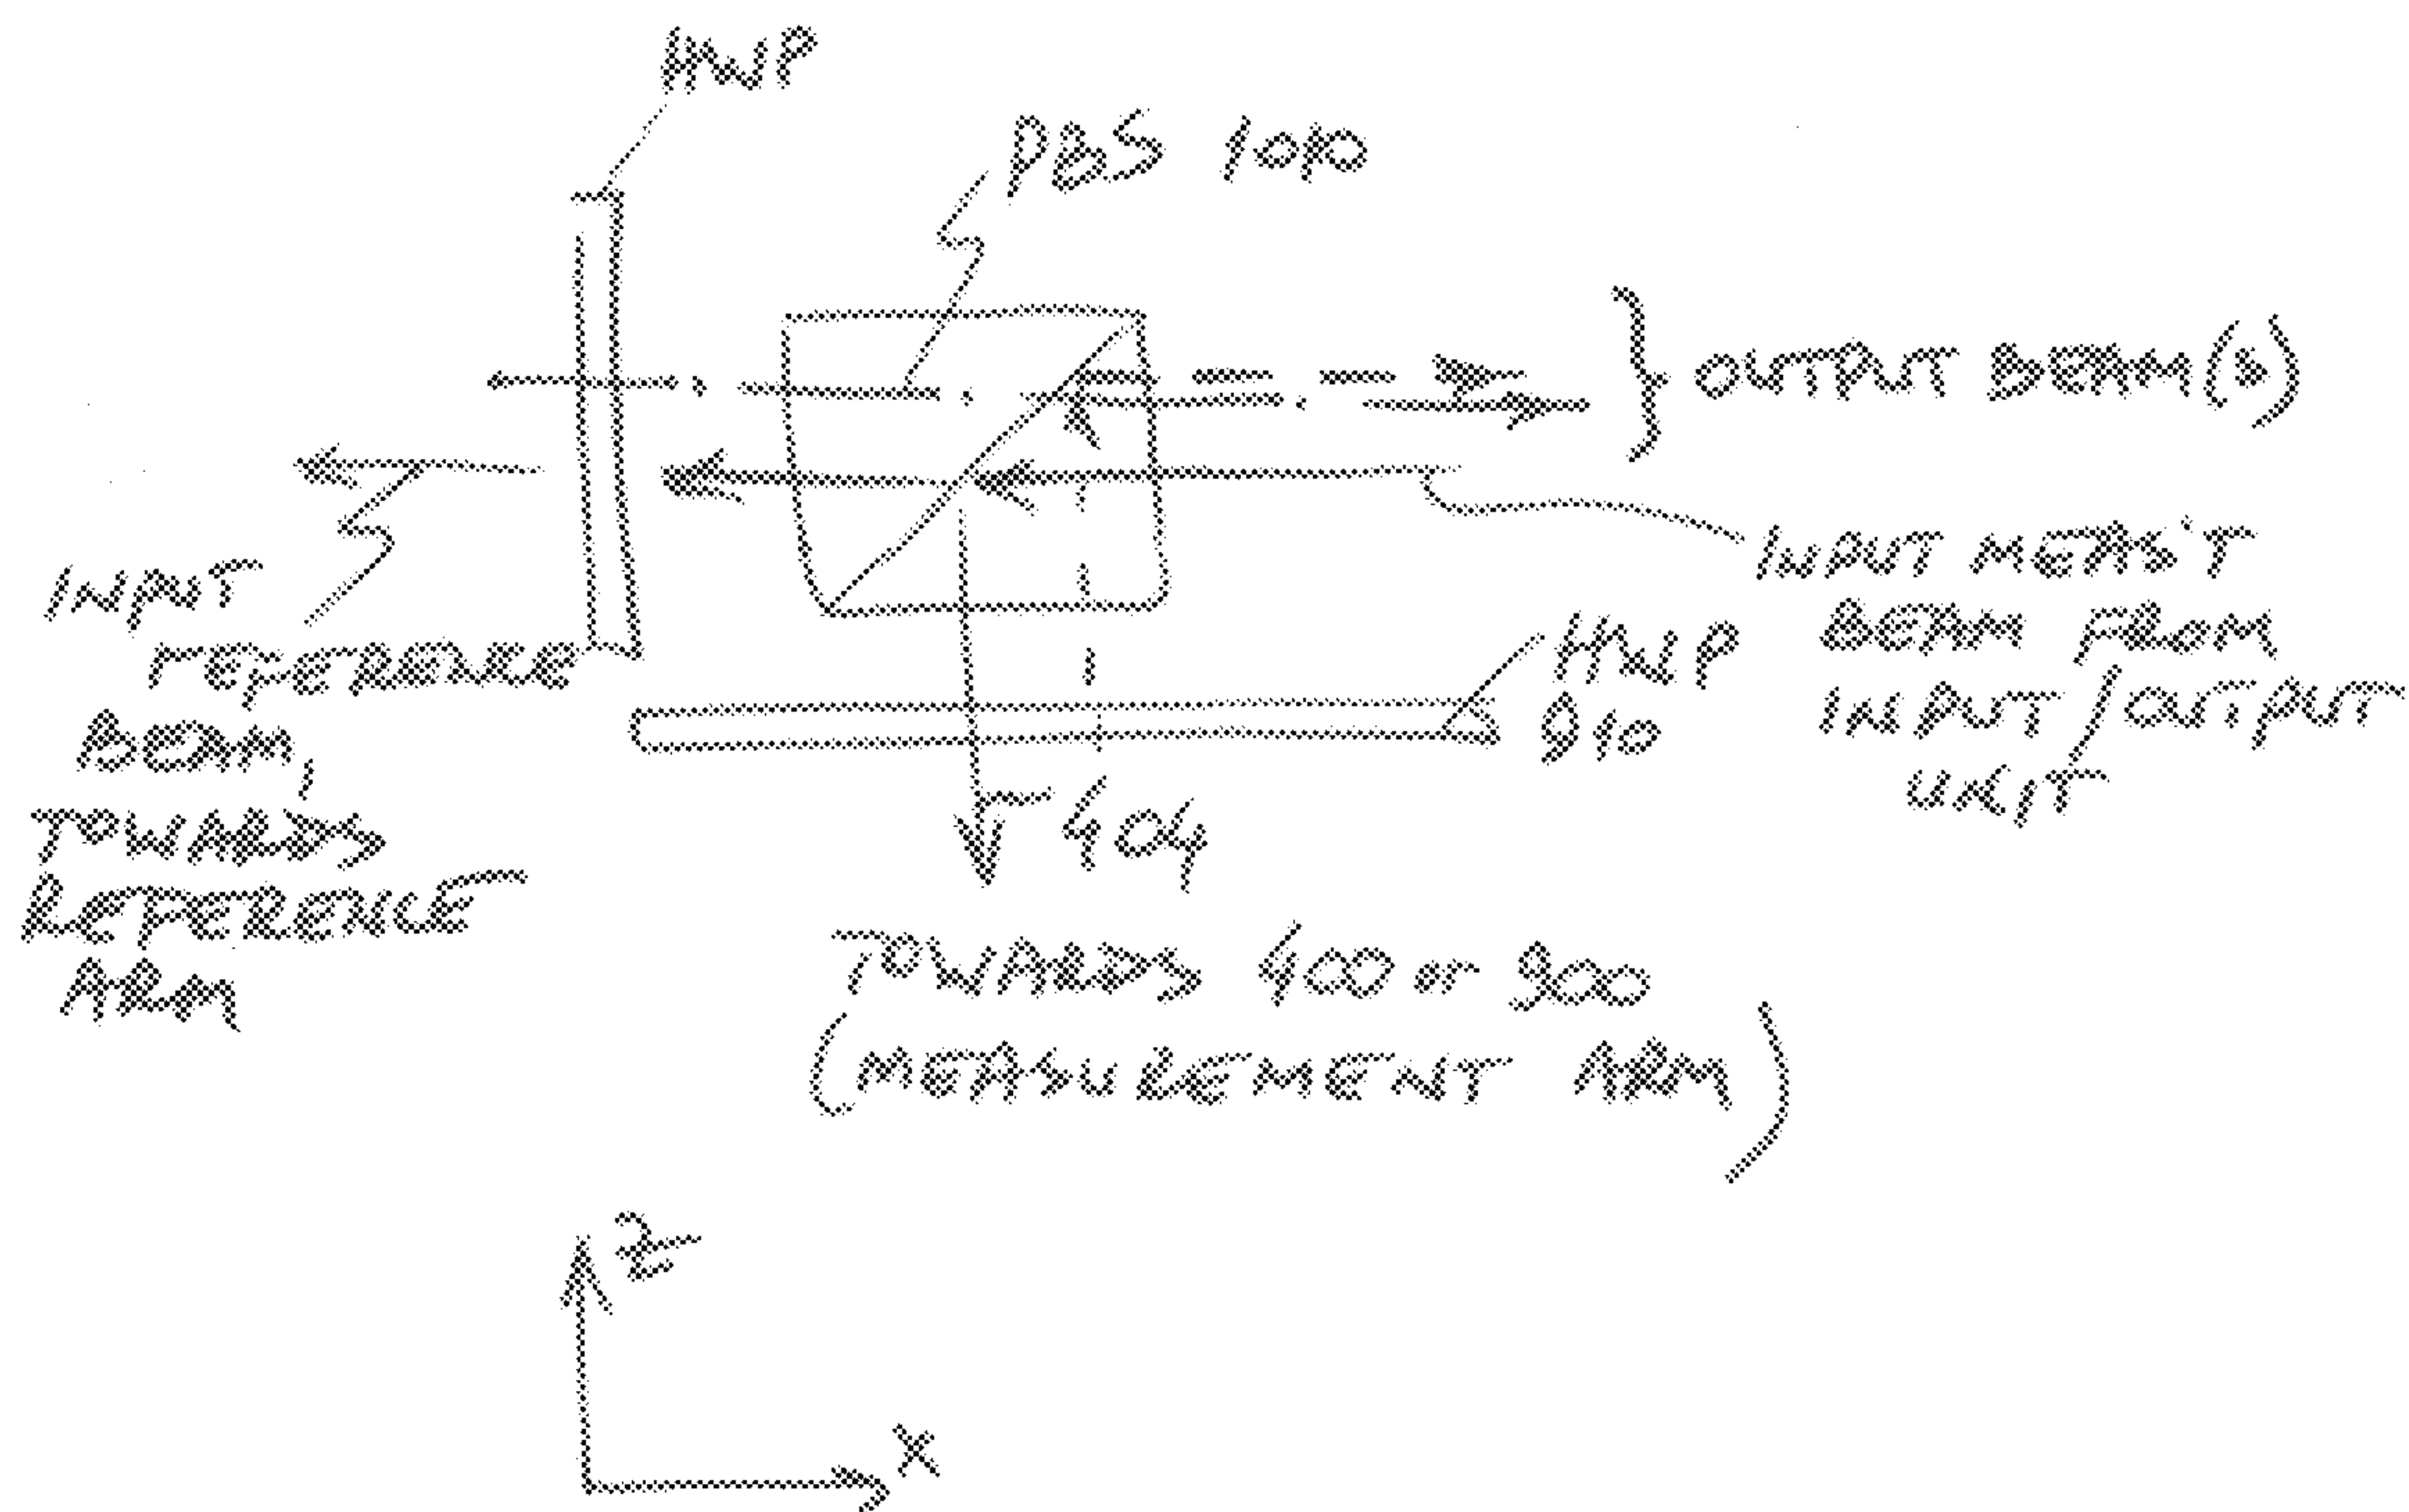 HWP
PBS 1010
OUTPUT BEAM(s)
INPUT MEAS'T
BEAM FROM
INPUT/OUTPUT
UNIT
INPUT
rEFERENCE
BEAM,
TOWARDS
REFERENCE
ARM
HWP
910
404
TOWARDS 400 or 900
(MEASUREMENT ARM)
Z
X